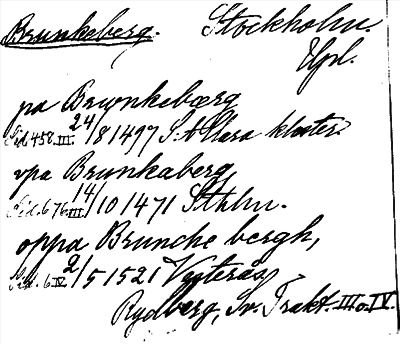 Brunkeberg. Stockholm.
Upl.
pa Brwnkebærg
Sid. 458. III. 24/8 1497 S:t Clara kloster.
vpa Brunkaberg
Sid. 676. III. 14/10 1471 Sthlm.
oppa Brunche bergh,
Sid. 6. IV. 2/5 1521 Vesterås,
Rydberg, Sv. Trakt. III o. IV.